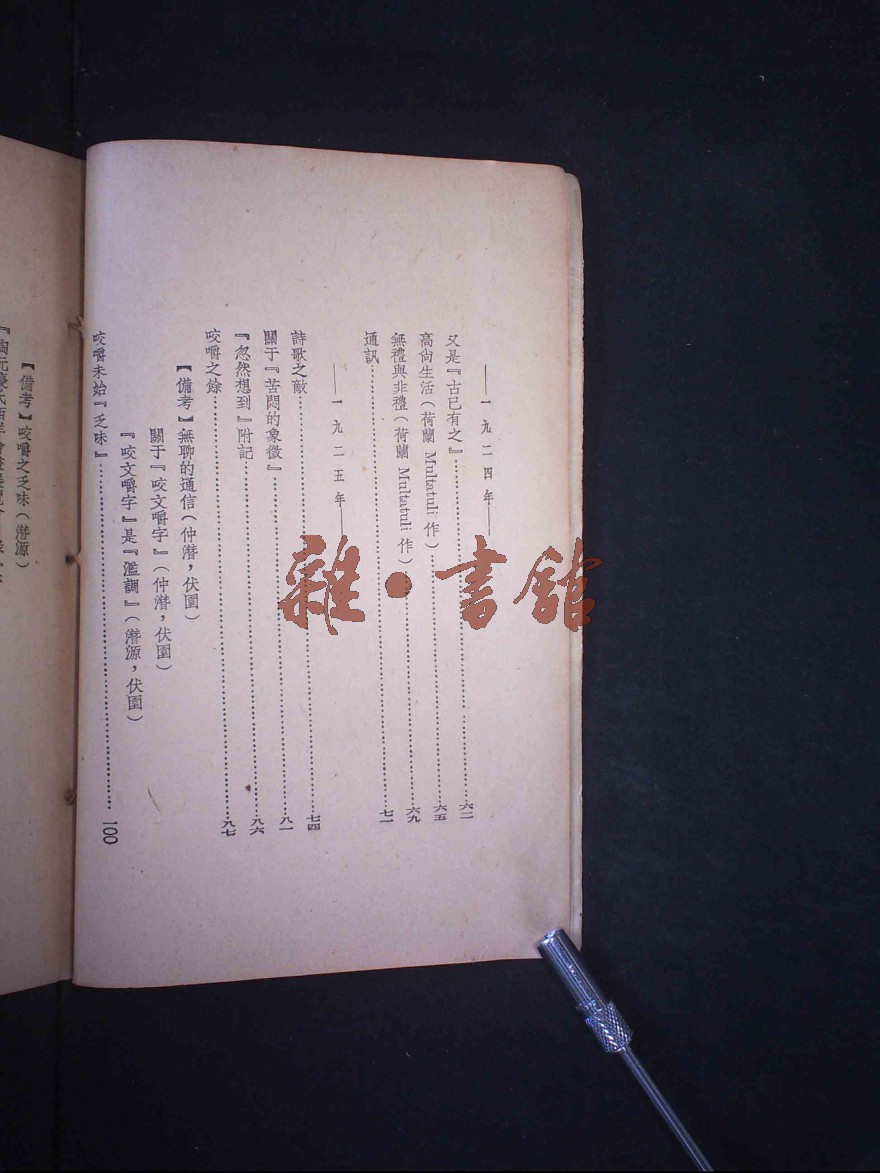 ——一九二四年——
又是『古已有之』……………六二
高尚生活(荷蘭 Multatuli 作)……………六五
無禮與非禮(荷蘭 Multatuli 作)……………六九
通訊……………七一
——一九二五年——
詩歌之敵……………七四
關于『苦悶的象徵』……………八一
『忽然想到』附記……………八六
咬嚼之餘……………九七
【備考】無聊的通信(仲潛,伏園)
關于『咬文嚼字』(仲潛,伏園)
『咬文嚼字』是『濫調』(潛源,伏園)
咬嚼未始『乏味』……………一00
【備考】咬嚼之乏味(潛源)
『陶元慶氏西洋
雜·書館